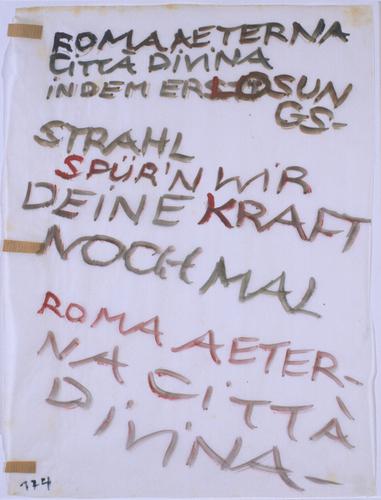 ROMA AETERNA
CITTÀ DIVINA
INDEM ERLOSUN
GS-
STRAHL
SPÜR'N WIR
DEINE KRAFT
NOCH MAL
ROMA AETER-
NA CITTÀ
DIVINA-
174